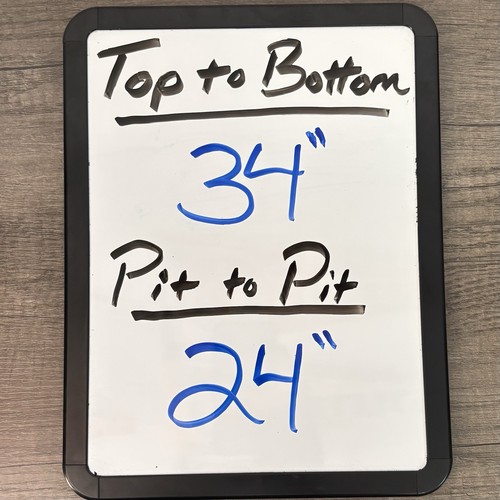 Top to Bottom
34"
Pit to Pit
24"